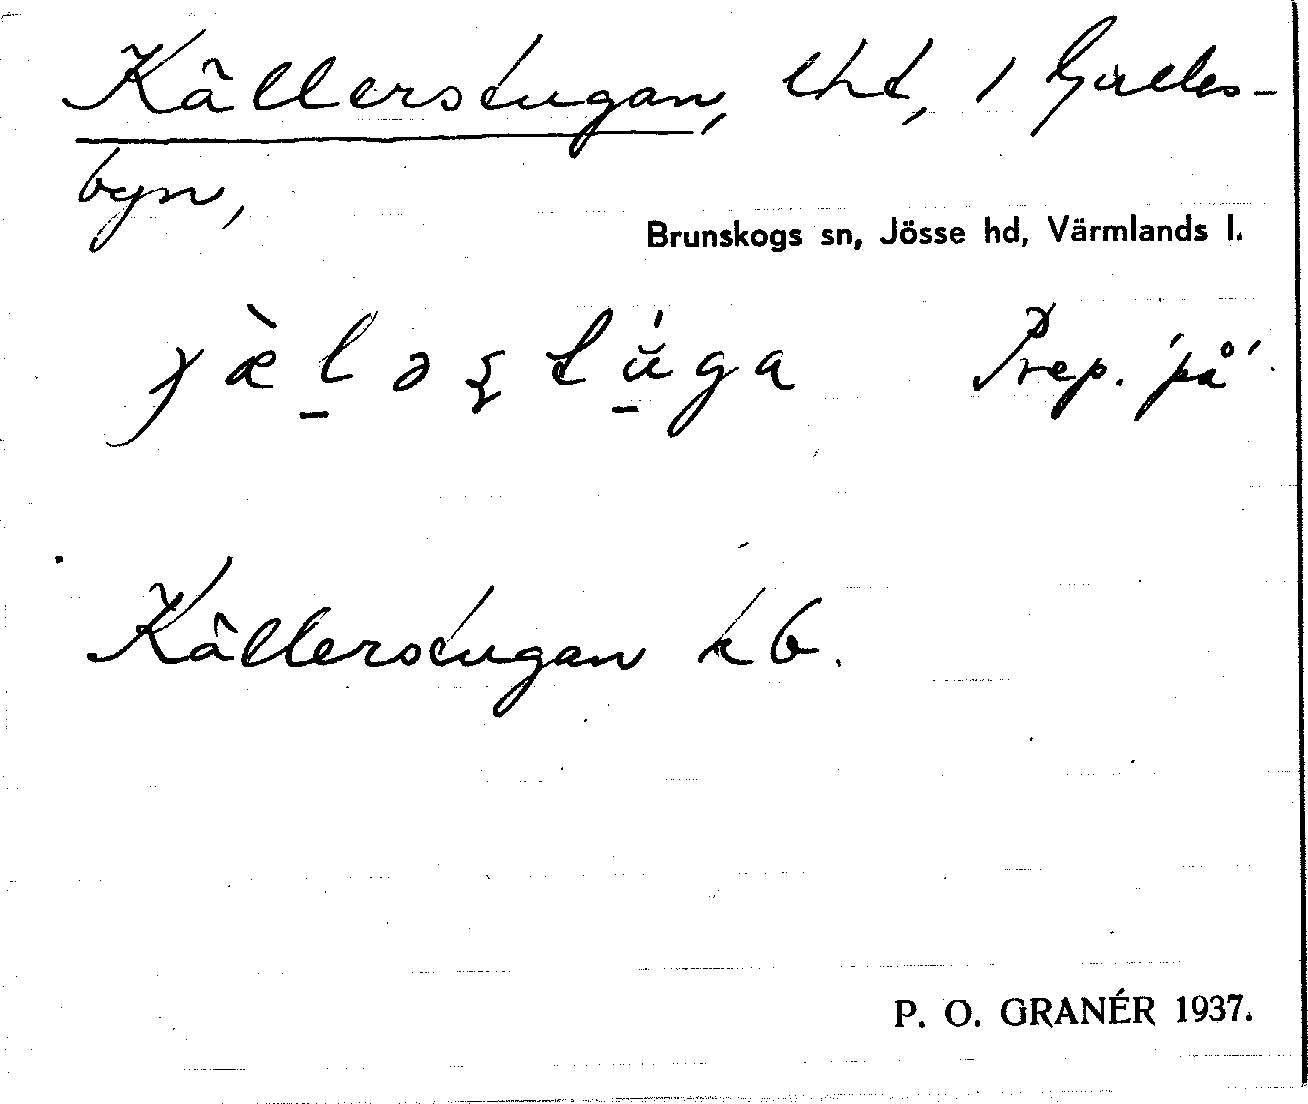 Källerstugan, lht, 1 Gulles-
byn,
Brunskogs sn, Jösse hd, Värmlands l.
Prep. 'på'
Källerstugan kb.
P. O. GRANÉR 1937.